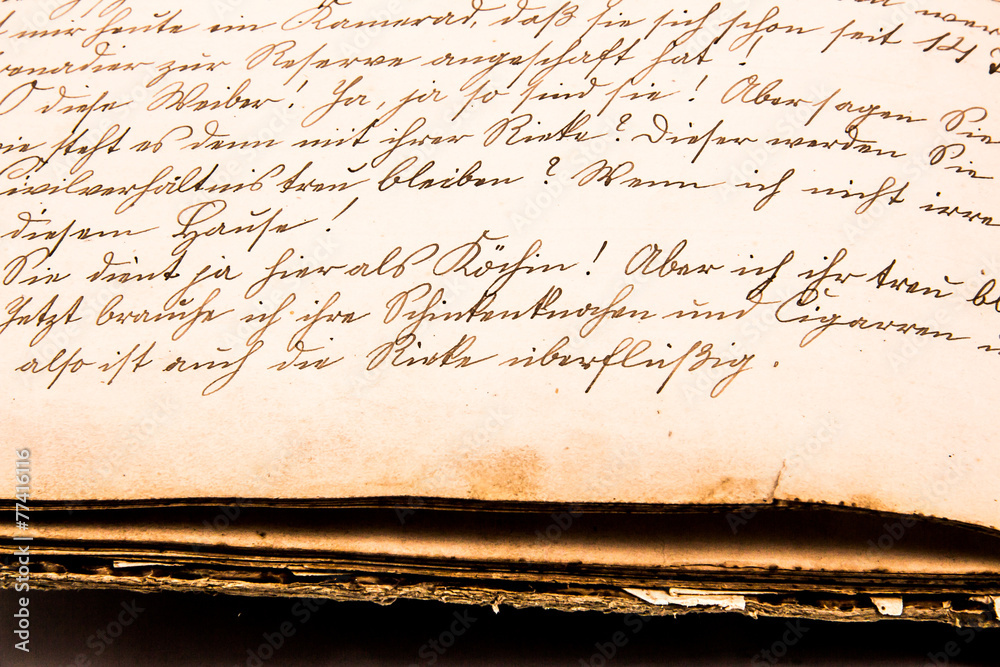 mir heute ein Kamerad, daß sie sich schon seit 14
renadier zur Reserve angeschaft hat!
O diese Weiber! Ja, ja so sind sie! Aber sagen Sie
wie steht es denn mit ihrer Rieke? Dieser werden Sie
Civilverhältnis treu bleiben? Wenn ich nicht irre
diesem Hause!
Sie dient ja hier als Köchin! Aber ich ihr treu bl
Jetzt brauche ich ihre Schinkenknochen und Cigarren
also ist auch die Rieke überflüßig.
Adobe Stock | #77416116